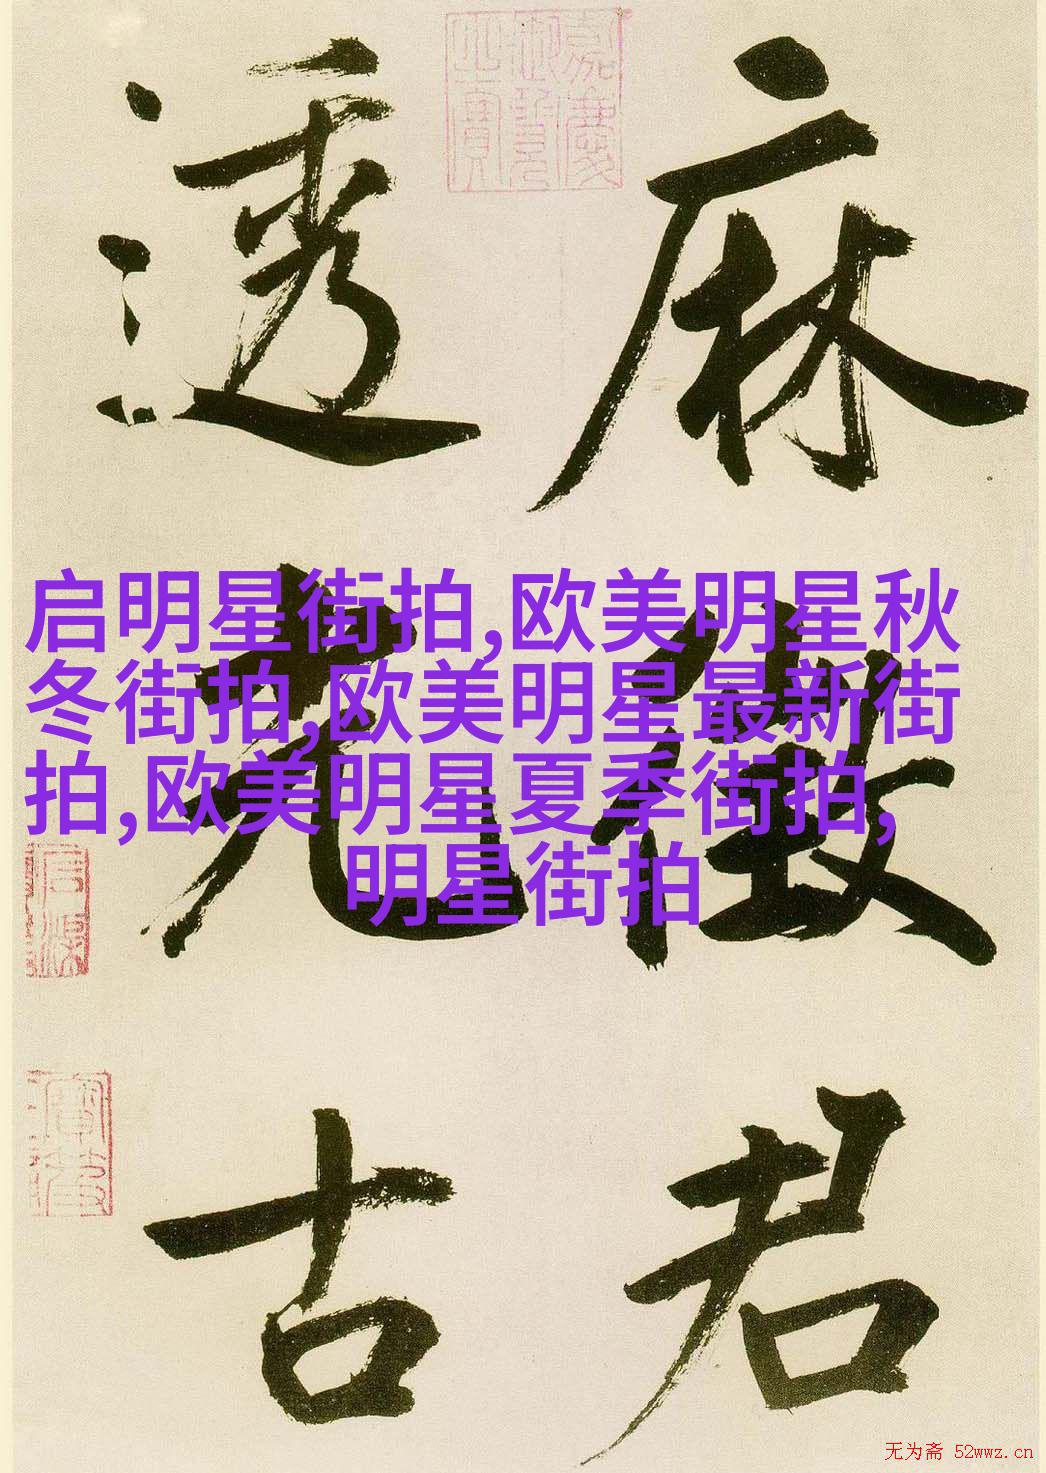 麻
徴
君
透
光
古
嘉慶
御覽
之寶
启明星街拍,欧美明星秋
冬街拍,欧美明星最新街
拍,欧美明星夏季街拍,
明星街拍
无为斋 52wwz.cn